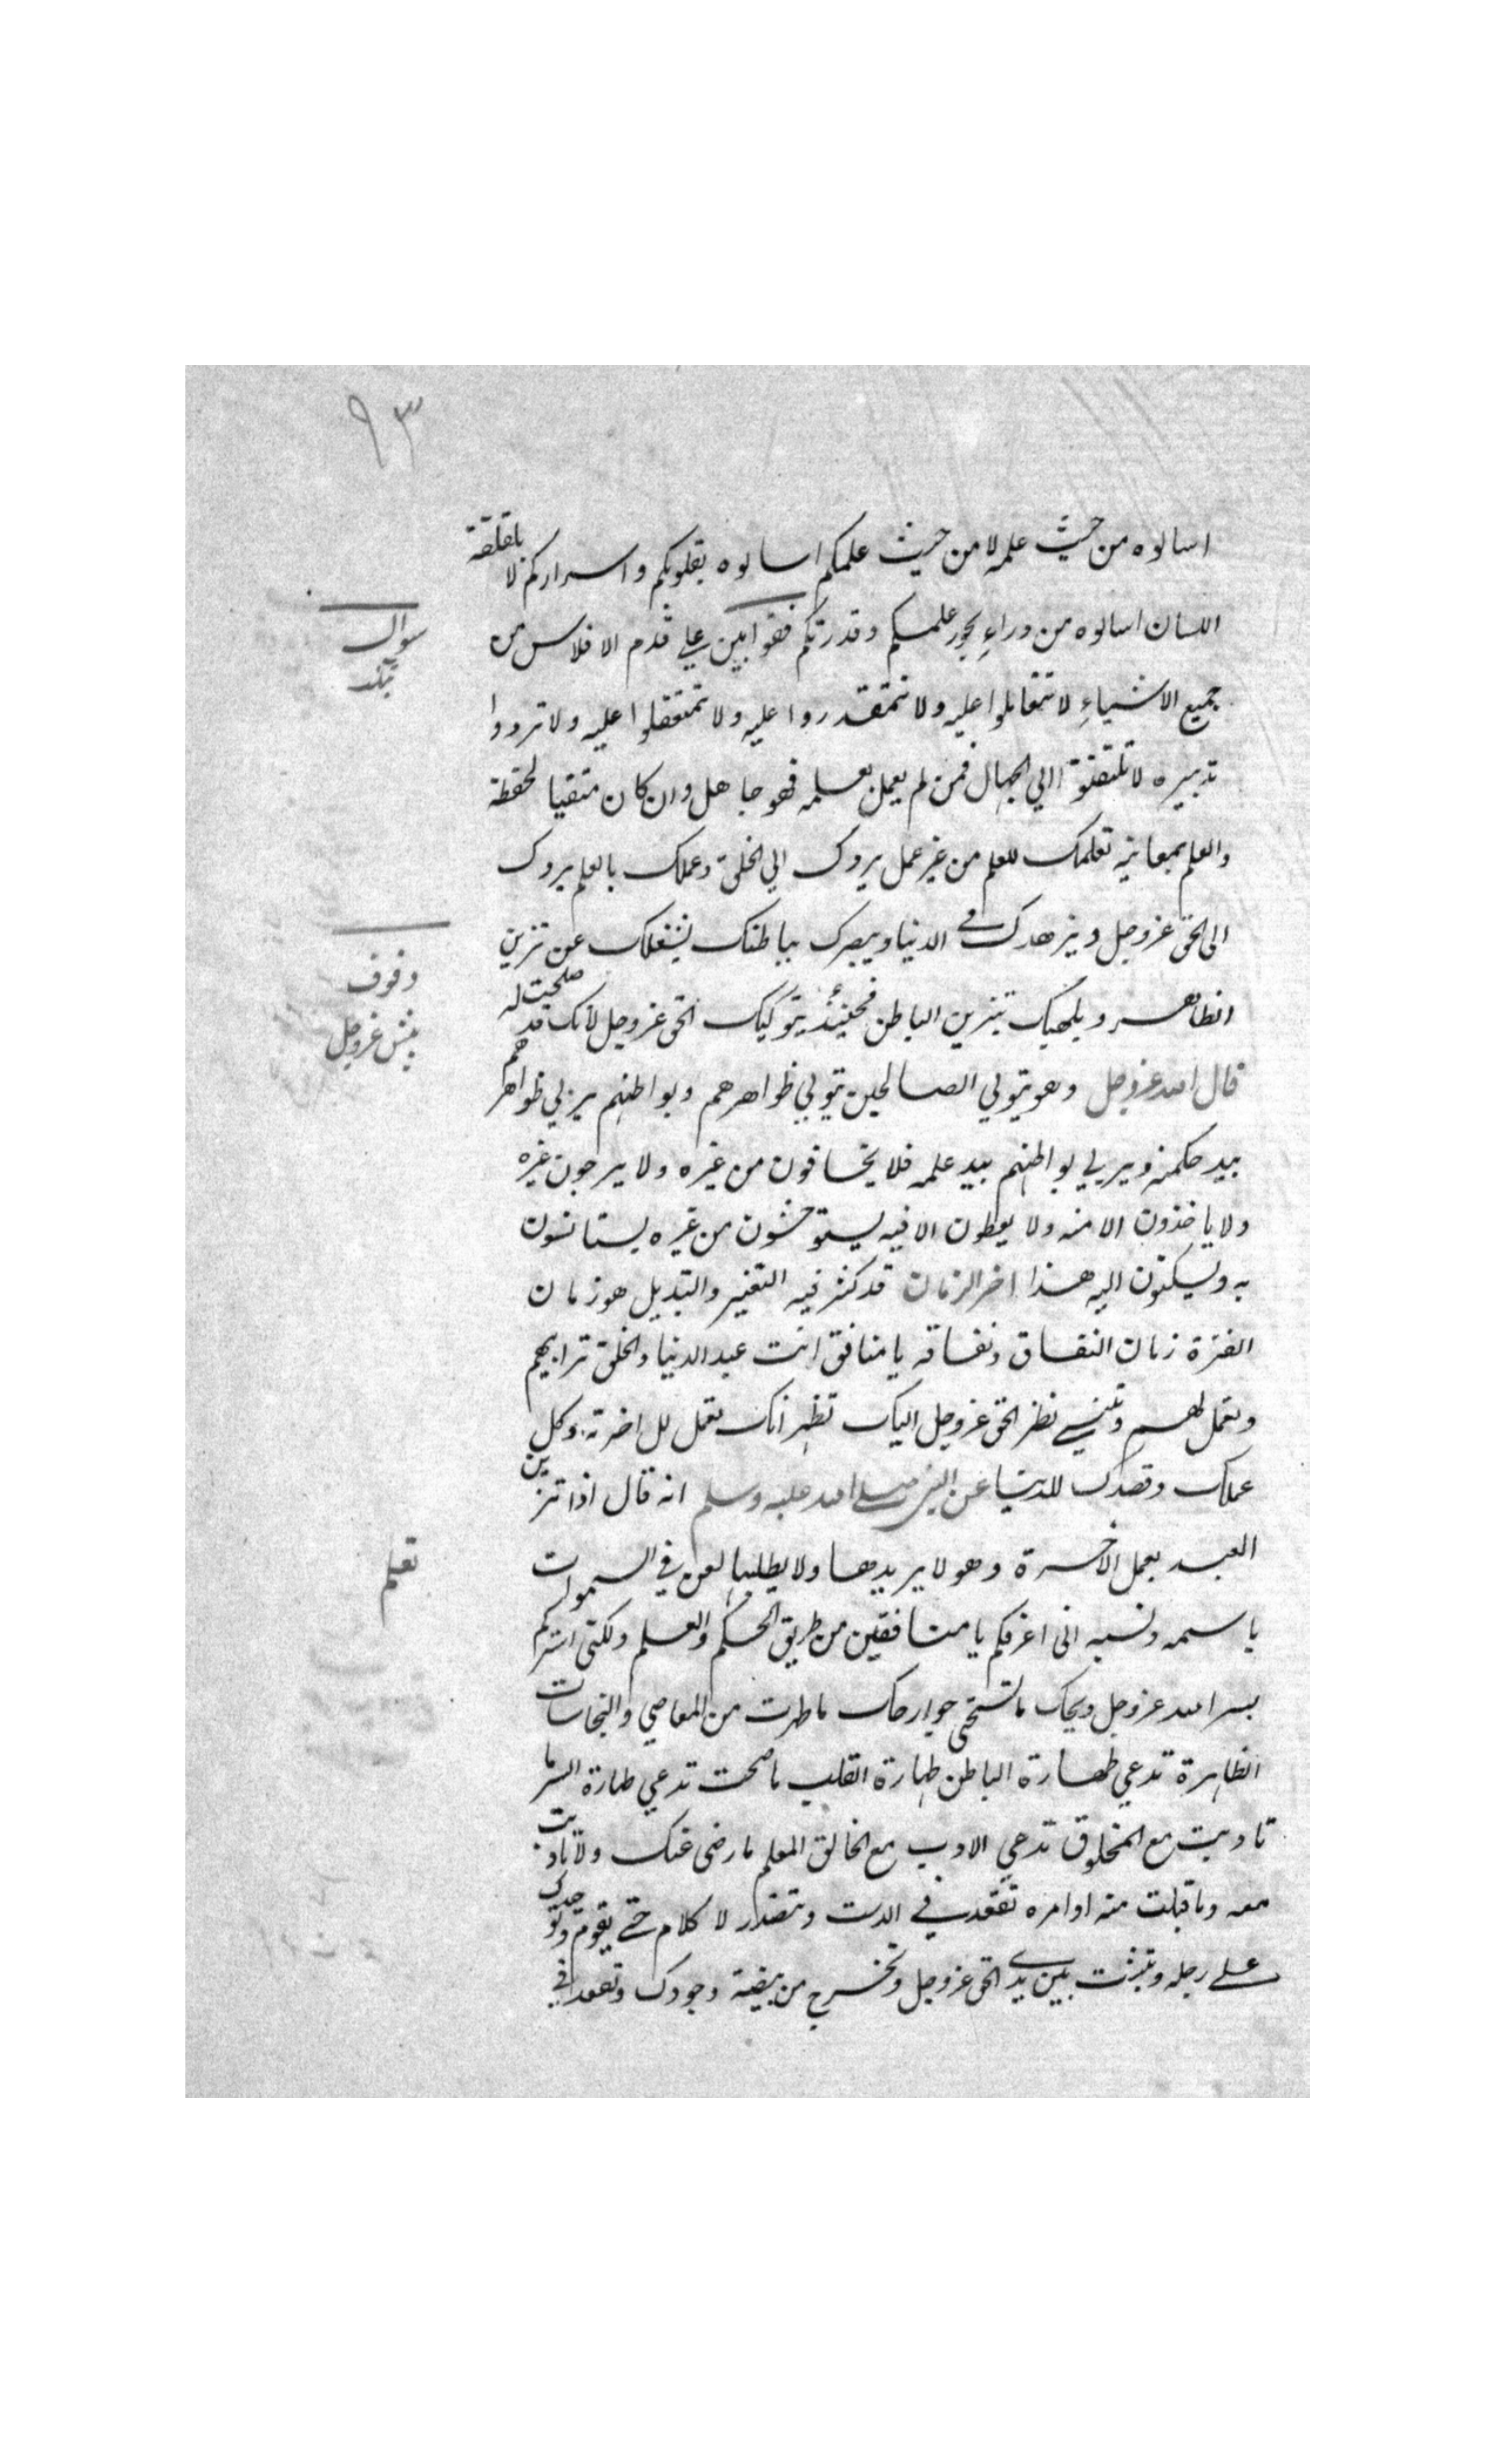 ٩٣
اسالوه من حيث علمه لا من حيث علمكم اسالوه بقلوبكم واسراركم لا بلقلقة
اللسان اسالوه من وراءِ علمكم وقدرتكم فقوا بين علي قدم الافلاس من
جميع الاشياءِ لا تتعاقلوا عليه ولا تتمقدروا عليه ولا تتمعقلوا عليه ولا تردوا
تدبيره لا تلتفتوا الي الجهال فمن لم يعمل بعلمه فهو جاهل وان كان متقيا لحفظة
والعلم بمعانيه تعلمك للعلم من غير عمل يردك الي الخلق وعملك بالعلم يردك
الى الحق عزوجل ويزهدك في الدنيا ويبصرك بباطنك يشغلك عن تزين
الظاهر ويلهمك تتزين الباطن فحينئذ يتوليك الحق عزوجل لانك قد صلحت له
قال الله عزوجل وهو يتولي الصالحين يتولي ظواهرهم وبواطنهم يربي ظواهرهم
بيد حكمته ويربي بواطنهم بيد علمه فلا يخافون من غيره ولا يرجون غيره
ولا ياخذون الا منه ولا يعطون الا فيه يستوحشون من غيره يستانسون
به ويسكنون اليه هذا اخر الزمان قد كثر فيه التغير والتبديل هو زمان
الفترة زمان النفاق ونفاقه يا منافق انت عبد الدنيا والخلق ترابيهم
وتعمل لهم وتنسي نظر الحق عزوجل اليك تظهر انك تعمل للاخرة وكل
عملك وقصدك للدنيا عن النبي صلى الله عليه وسلم انه قال اذا تزين
العبد بعمل الآخرة وهو لا يريدها ولا يطلبها لعن في السموات
باسمه ونسبه انى اعرفكم يا منافقين من طريق الحكم والعلم ولكنى استركم
بستر الله عزوجل ويحك ما تستحى جوارحك ما طهرت من المعاصي والنجاسات
الظاهرة تدعي طهارة الباطن طهارة القلب ما صحت تدعي طهارة السر ما
تاديت مع المخلوق تدعي الادب مع الخالق المعلم ما رضى عنك ولا تاديت
معه وما قبلت منه اوامره تقعد في الدست وتتصدر لا كلام حتى يقوم توحيدك
على رجله ويثبت بين يدى الحق عزوجل وتخرج من بيضة وجودك وتقعد في
سوال
وقوف
پیش عزوجل
تعلم